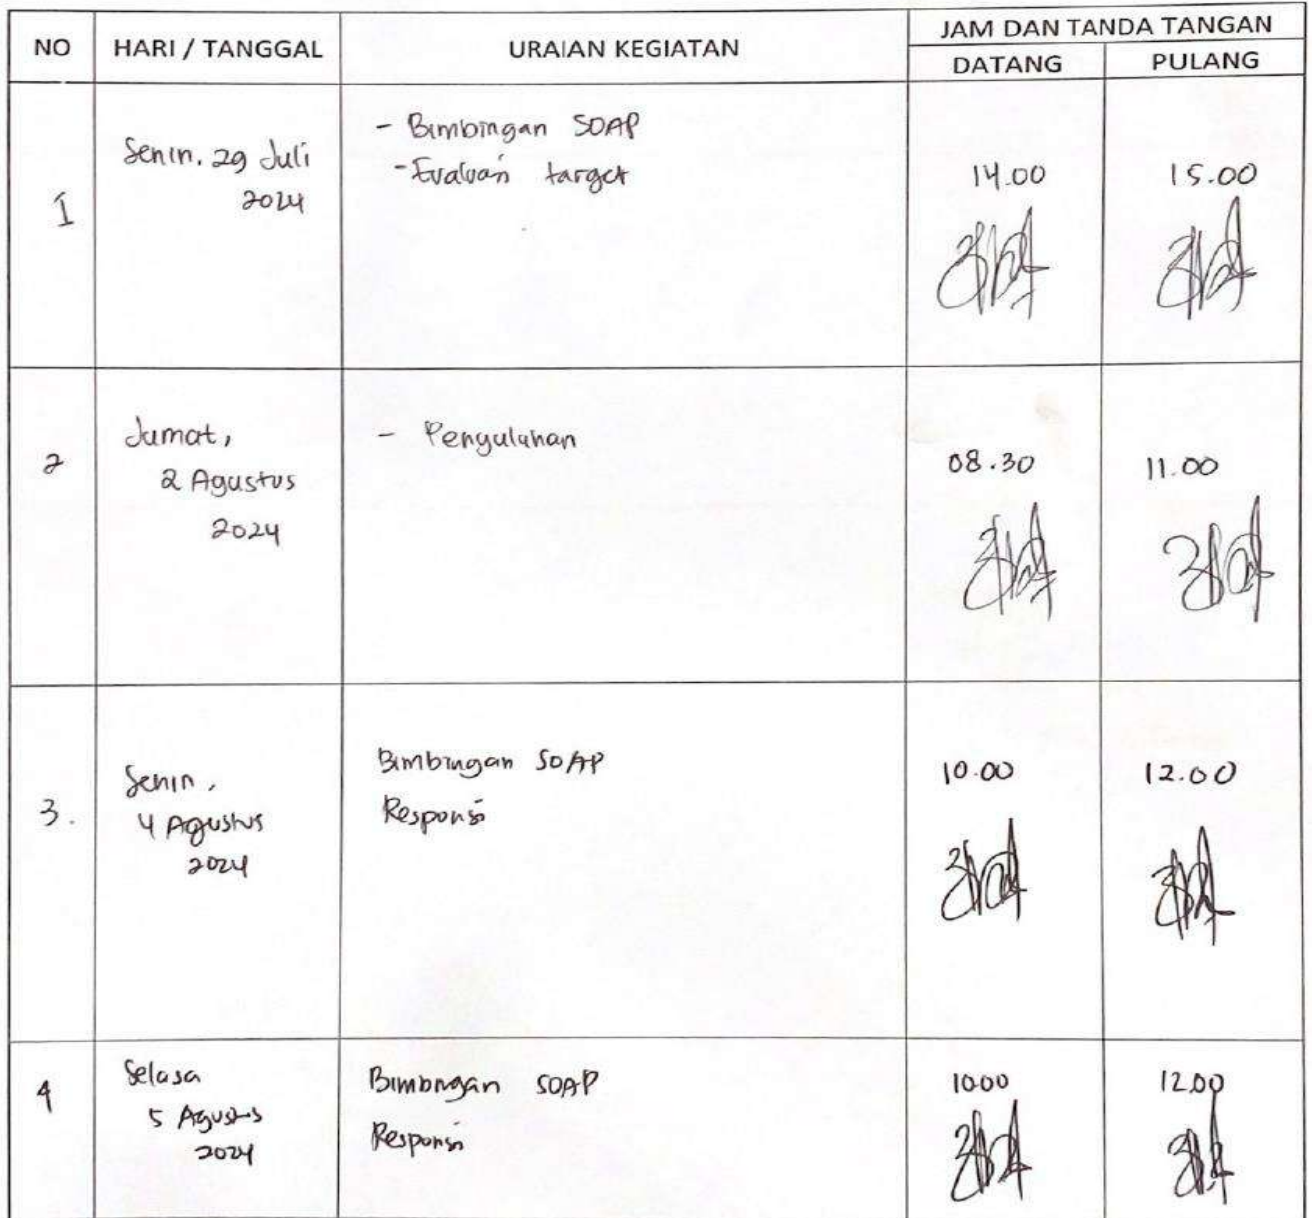 NO HARI / TANGGAL URAIAN KEGIATAN JAM DAN TANDA TANGAN
DATANG PULANG
1 Senin, 29 Juli 2024
- Bimbingan SOAP
- Evaluasi target
14.00 15.00
2 Jumat,
2 Agustus
2024
- Pengulahan
08.30 11.00
3. Senin,
4 Agustus
2024
Bimbingan SOAP
Responsi
10.00 12.00
4 Selasa
5 Agustus
2024
Bimbingan SOAP
Responsi
10.00 12.00